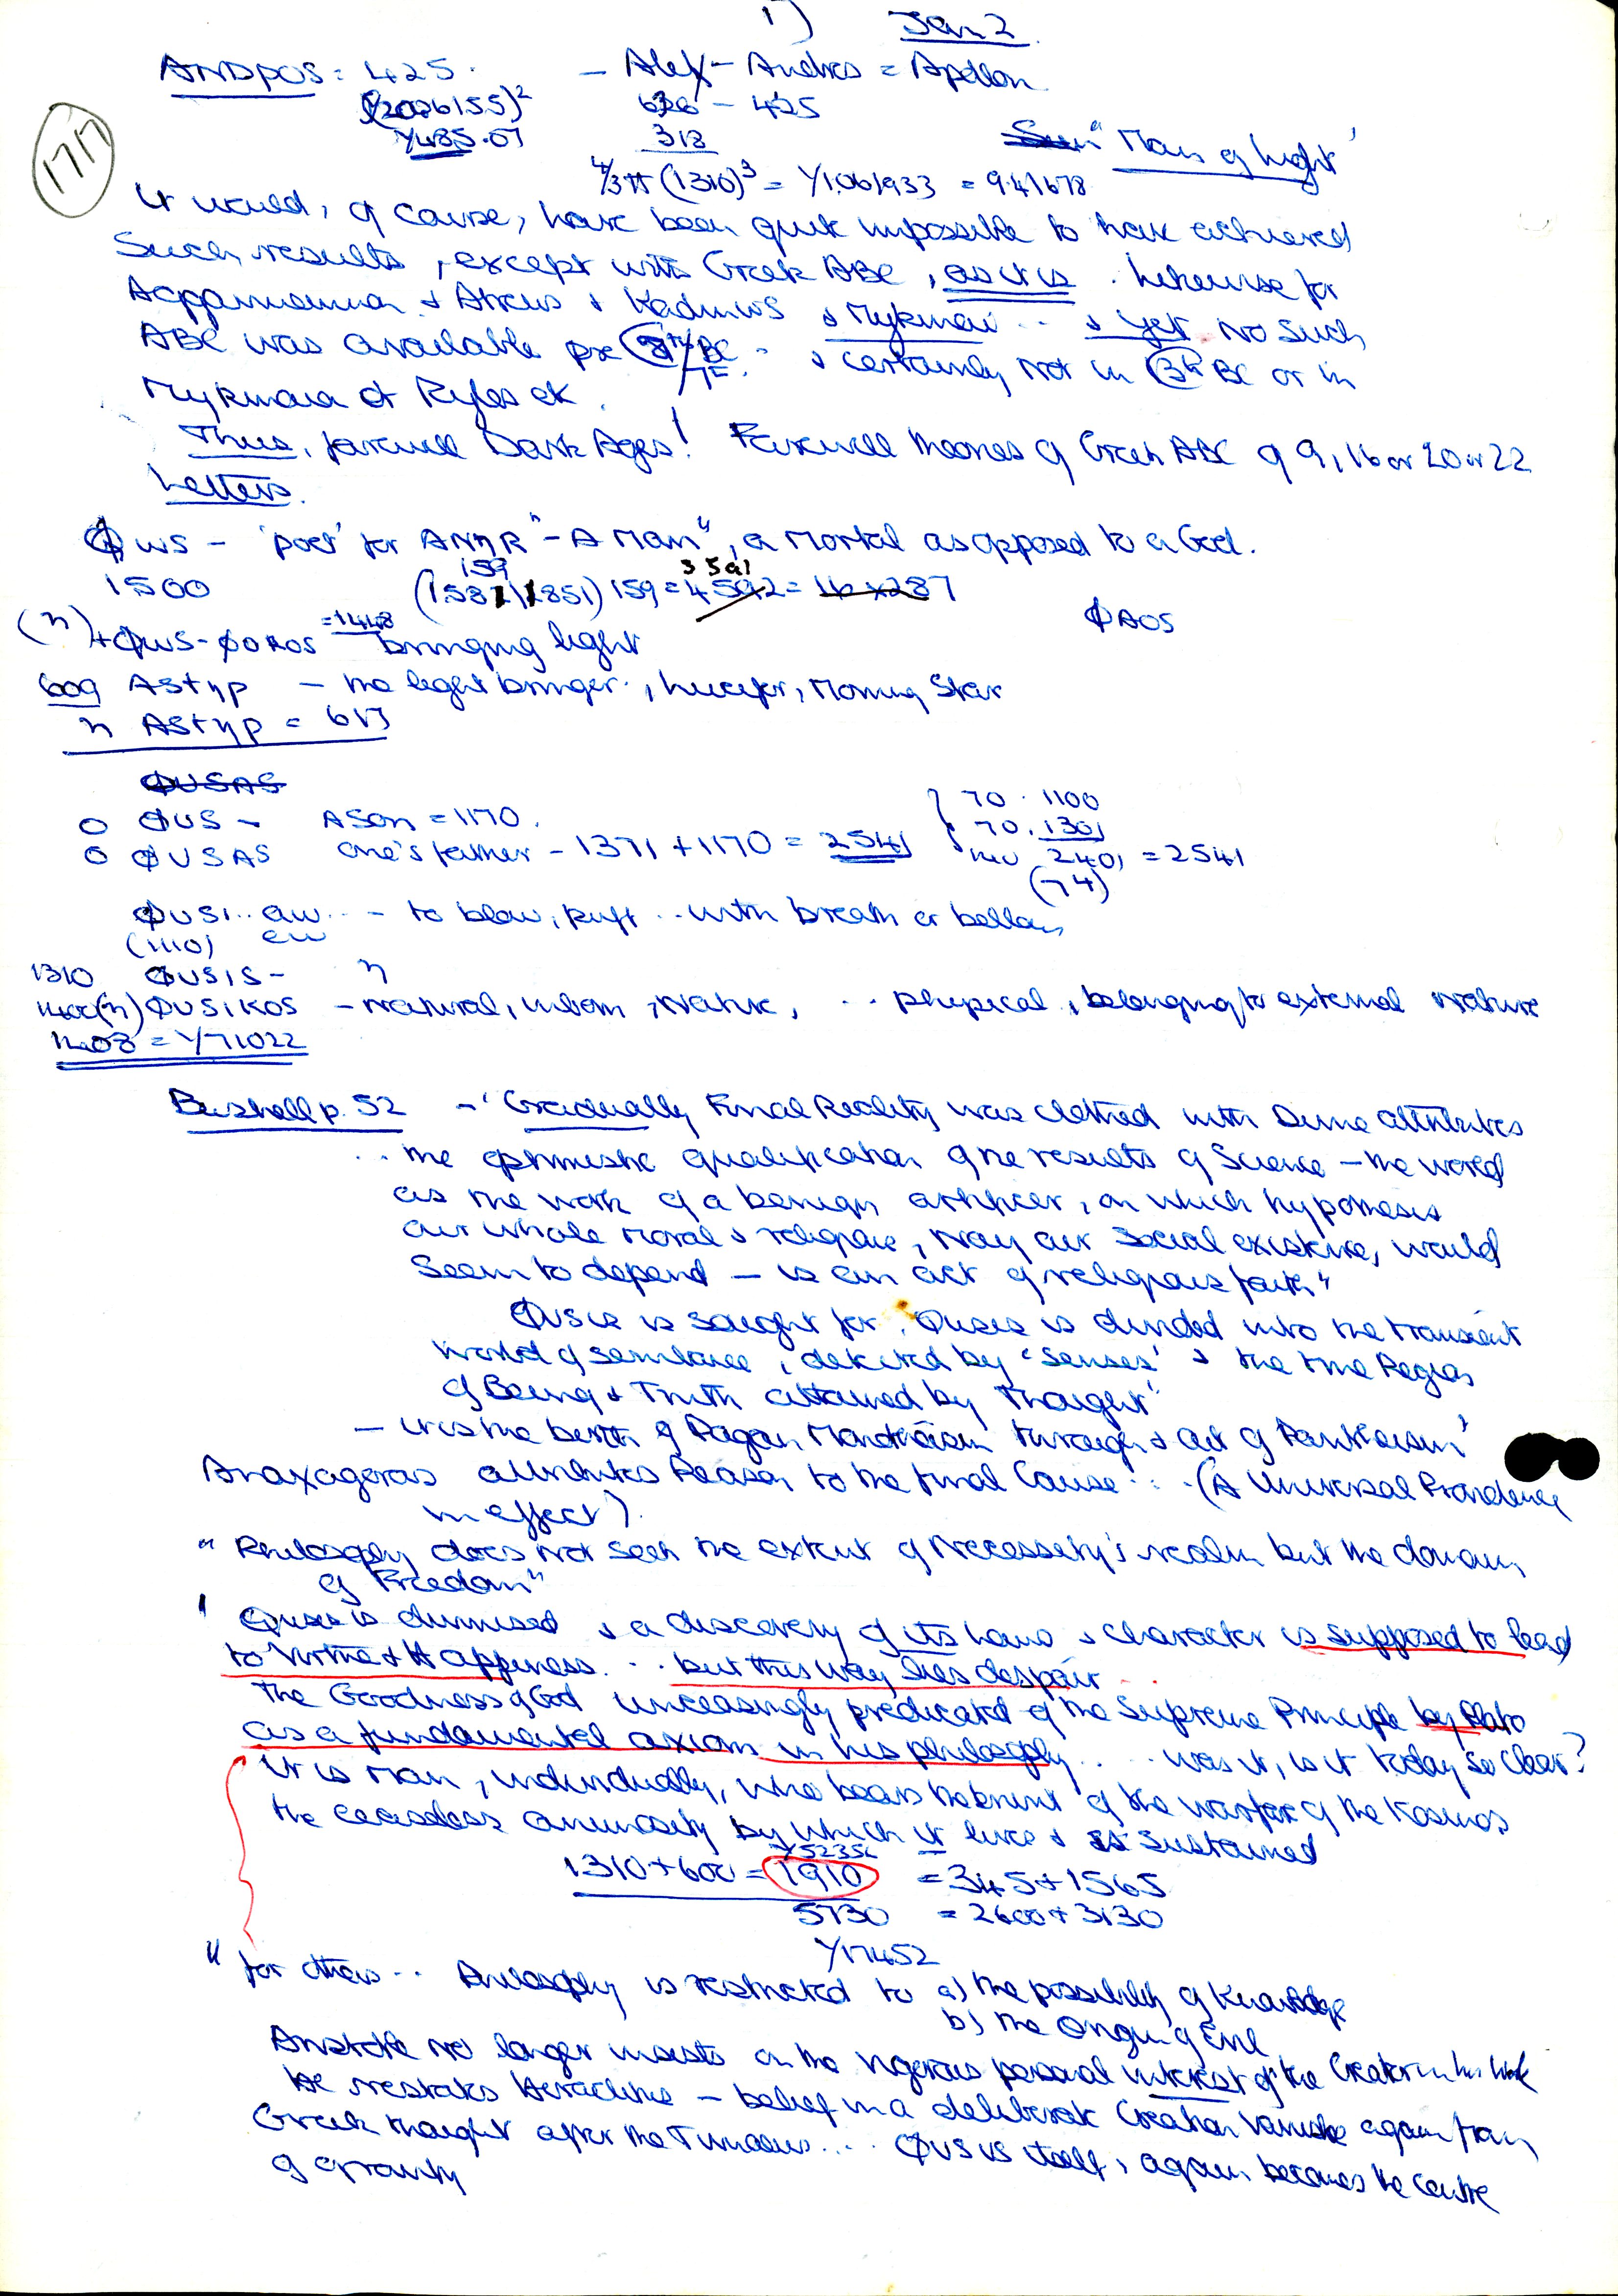 1) Jan 2
ANDPOS = 425. — Alex - Andros = Apollon
(1/2006155)² 626 - 425
1/485.07 318 "Man of Light'
1717
4/3π (1310)³ = 1/1.061933 = 9.41678
It would, of course, have been quite impossible to have achieved
such results, except with Greek ABC, as it is. Likewise for
Agamemnon & Atreus & Kadmus & Mykinai .. & yet no such
ABC was available pre 8th/7 BC. & certainly not in 13th BC or in
Mykinaia or Pylos etc.
Thus, farewell Dark Ages! Farewell theories of Greek ABC of 9, 16 or 20 or 22
Letters.
ΦwS - 'poet' for ANηR "- A Man", a Mortal as opposed to a God.
1500 159 (1581)(1851) 159 = 4592 = 16 x 287 3591
ΦAOS
(η) + ΦwS-ΦOROS =1448 bringing light
609 AStηp — the light bringer, Lucifer, Morning Star
η AStηp = 617
ΦUSAS
O ΦUS — A Son = 1170. 70.1100
O ΦUSAS One's father - 1371 + 1170 = 2541 70.1301
2401 = 2541
(74)
ΦUSI.. aw .. - to blow, puff .. with breath or bellows
(1110) ew
1310 ΦUSIS - η
1400 (η) ΦUSIKOS - natural, inborn, Nature, .. physical, belonging to external nature
1408 = 1/71022
Bushell p. 52 - 'Gradually Final Reality was clothed with Divine attributes
.. the optimistic qualification of the results of Science — the world
as the work of a benign artificer, on which hypothesis
our whole moral & religious, nay our social existence, would
seem to depend — is an act of religious faith"
ΦUSIS is sought for. ΦUSIS is divided into the transient
World of semblance, detected by 'senses' & the true Region
of Being & Truth attained by Thought"
— it is the birth of Pagan Monotheism through & out of Pantheism'
Anaxagoras attributes Reason to the final Cause ... (A Universal Providence
in effect).
" Philosophy does not seek the extent of Necessity's realm but the domain
of Freedom"
' ΦUSIS is dismissed & a discovery of its laws & character is supposed to lead
to Virtue & Happiness. .. but this way lies despair
The Goodness of God unceasingly predicated of the Supreme Principle by Plato
as a fundamental axiom in his philosophy .. .. was it, is it today so clear?
It is Man, individually, who bears the brunt of the warfare of the Kosmos
the ceaseless animosity by which it lives & is sustained
1/52356
1310 + 600 = 1910 = 345 + 1565
5730 = 2600 + 3130
1/17452
" for others .. Philosophy is restricted to a) the possibility of Knowledge
b) the Origin of Evil
Aristotle no longer insists on the vigorous personal interest of the Creator in his Work
He restates Heraclitus — belief in a deliberate Creation vanishes again from
Greek thought after the Timaeus .... ΦUSIS itself, again becomes the centre
of gravity